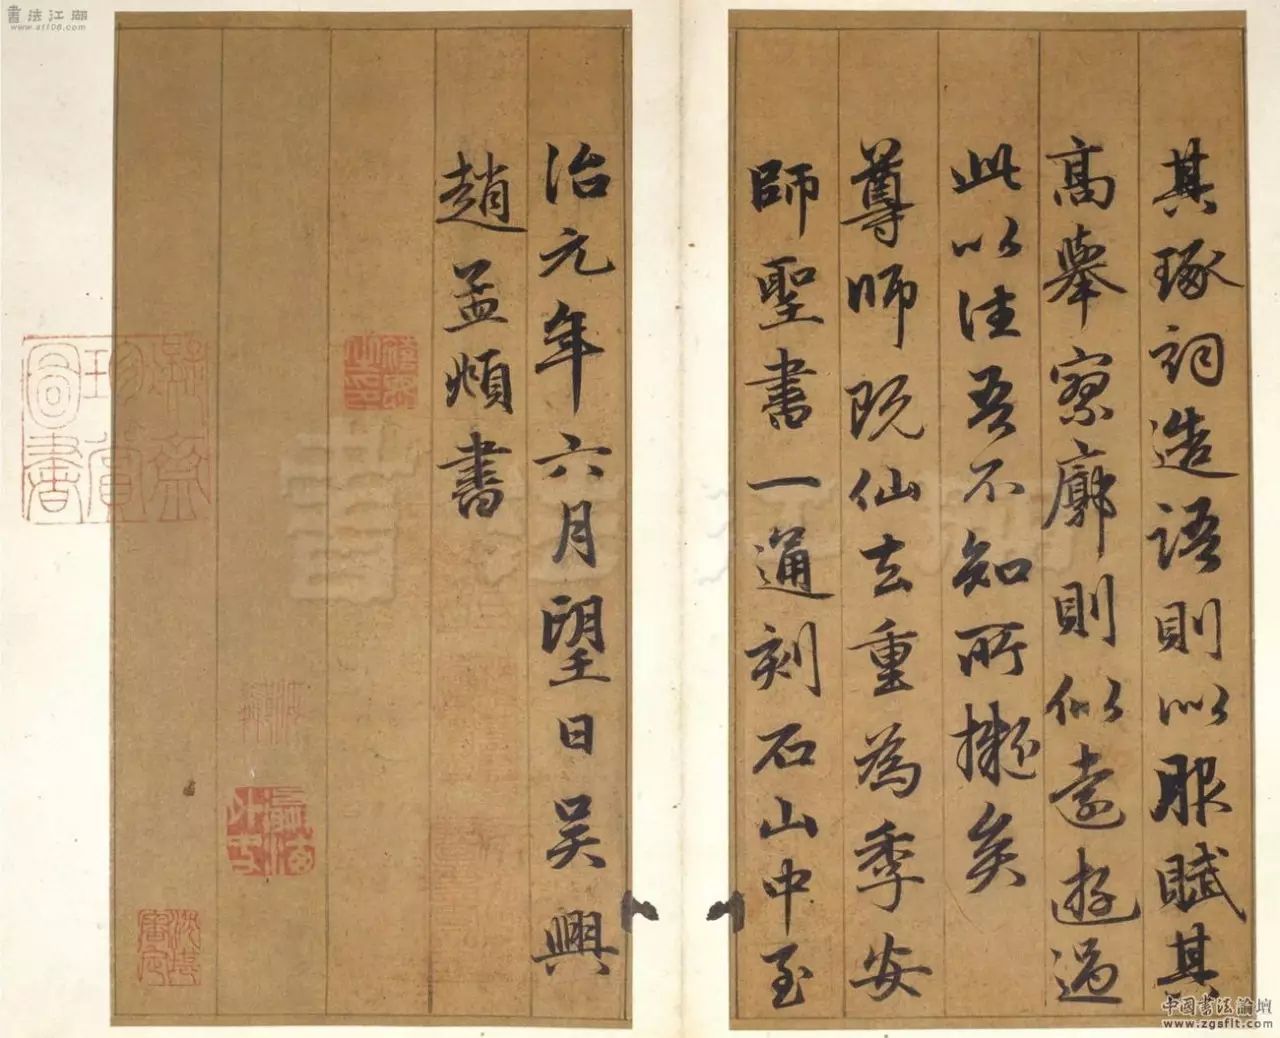 其琢詞造語則以服賦其
高舉寥廓則似遠遊過
此以往吾不知所擬矣
尊師既仙去重為季安
師聖書一通刻石山中至
治元年六月望日吳興
趙孟頫書
書法江湖
www.sf108.com
中國書法論壇
www.zgsflt.com